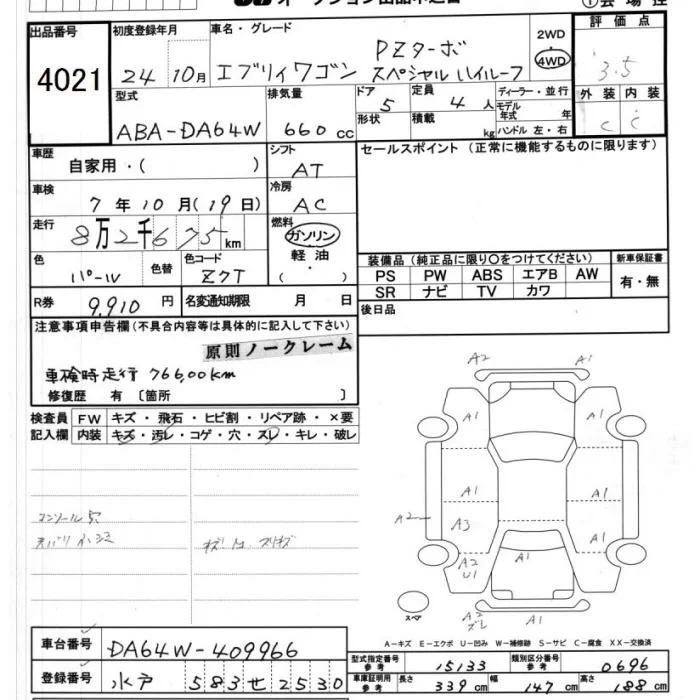 オークション出品申込書
①会場控
出品番号 4021
初度登録年月 24 10月
車名・グレード エブリィワゴン PZターボ スペシャルハイルーフ
2WD
4WD
評価点 3.5
外装 C
内装 C
型式 ABA-DA64W
排気量 660 cc
ドア 5
形状
定員 4 人
積載 kg
ディーラー・並行
モデル年式 年
ハンドル 左・右
車歴 自家用・( )
シフト AT
セールスポイント (正常に機能するものに限ります)
車検 7年10月(19日)
冷房 AC
走行 8万2千675km
燃料 ガソリン
軽油
・
( )
色 パール
色替
色コード Z7T
装備品 (純正品に限り○をつけてください)
PS PW ABS エアB AW
SR ナビ TV カワ
新車保証書
有・無
R券 9,910円
名変通知期限 月 日
後日品
注意事項申告欄(不具合内容等は具体的に記入して下さい)
原則ノークレーム
車検時走行 766,00km
修復歴 有〔箇所 〕
検査員 FW キズ・飛石・ヒビ割・リペア跡・×要
記入欄 内装 キズ・汚レ・コゲ・穴・スレ・キレ・破レ
コンソール穴
A2 A1
A1 A1
A1 A1
A2 A3 A1 A1
A2
U1
A2
ズレ
A1
スペア
A-キズ E-エクボ U-凹み W-補修跡 S-サビ C-腐食 XX-交換済
車台番号 DA64W-409966
登録番号 水戸 583 せ 2530
型式指定番号 参考 15133
類別区分番号 参考 0696
車庫証明用 参考 長さ 339cm 幅 147cm 高さ 188cm